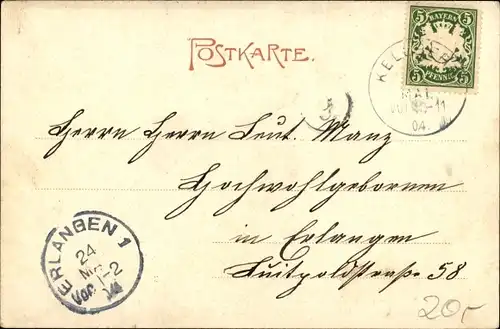 POSTKARTE.
BAYERN
5 5
PFENNIG
5 5
KEL
MAI
VOR 11
04.
5
Herrn Herrn Leut. Manz
Hochwohlgebornen
in Erlangen
Luitpoldstraße 58
ERLANGEN 1
24
Vor. 1-2
20.-